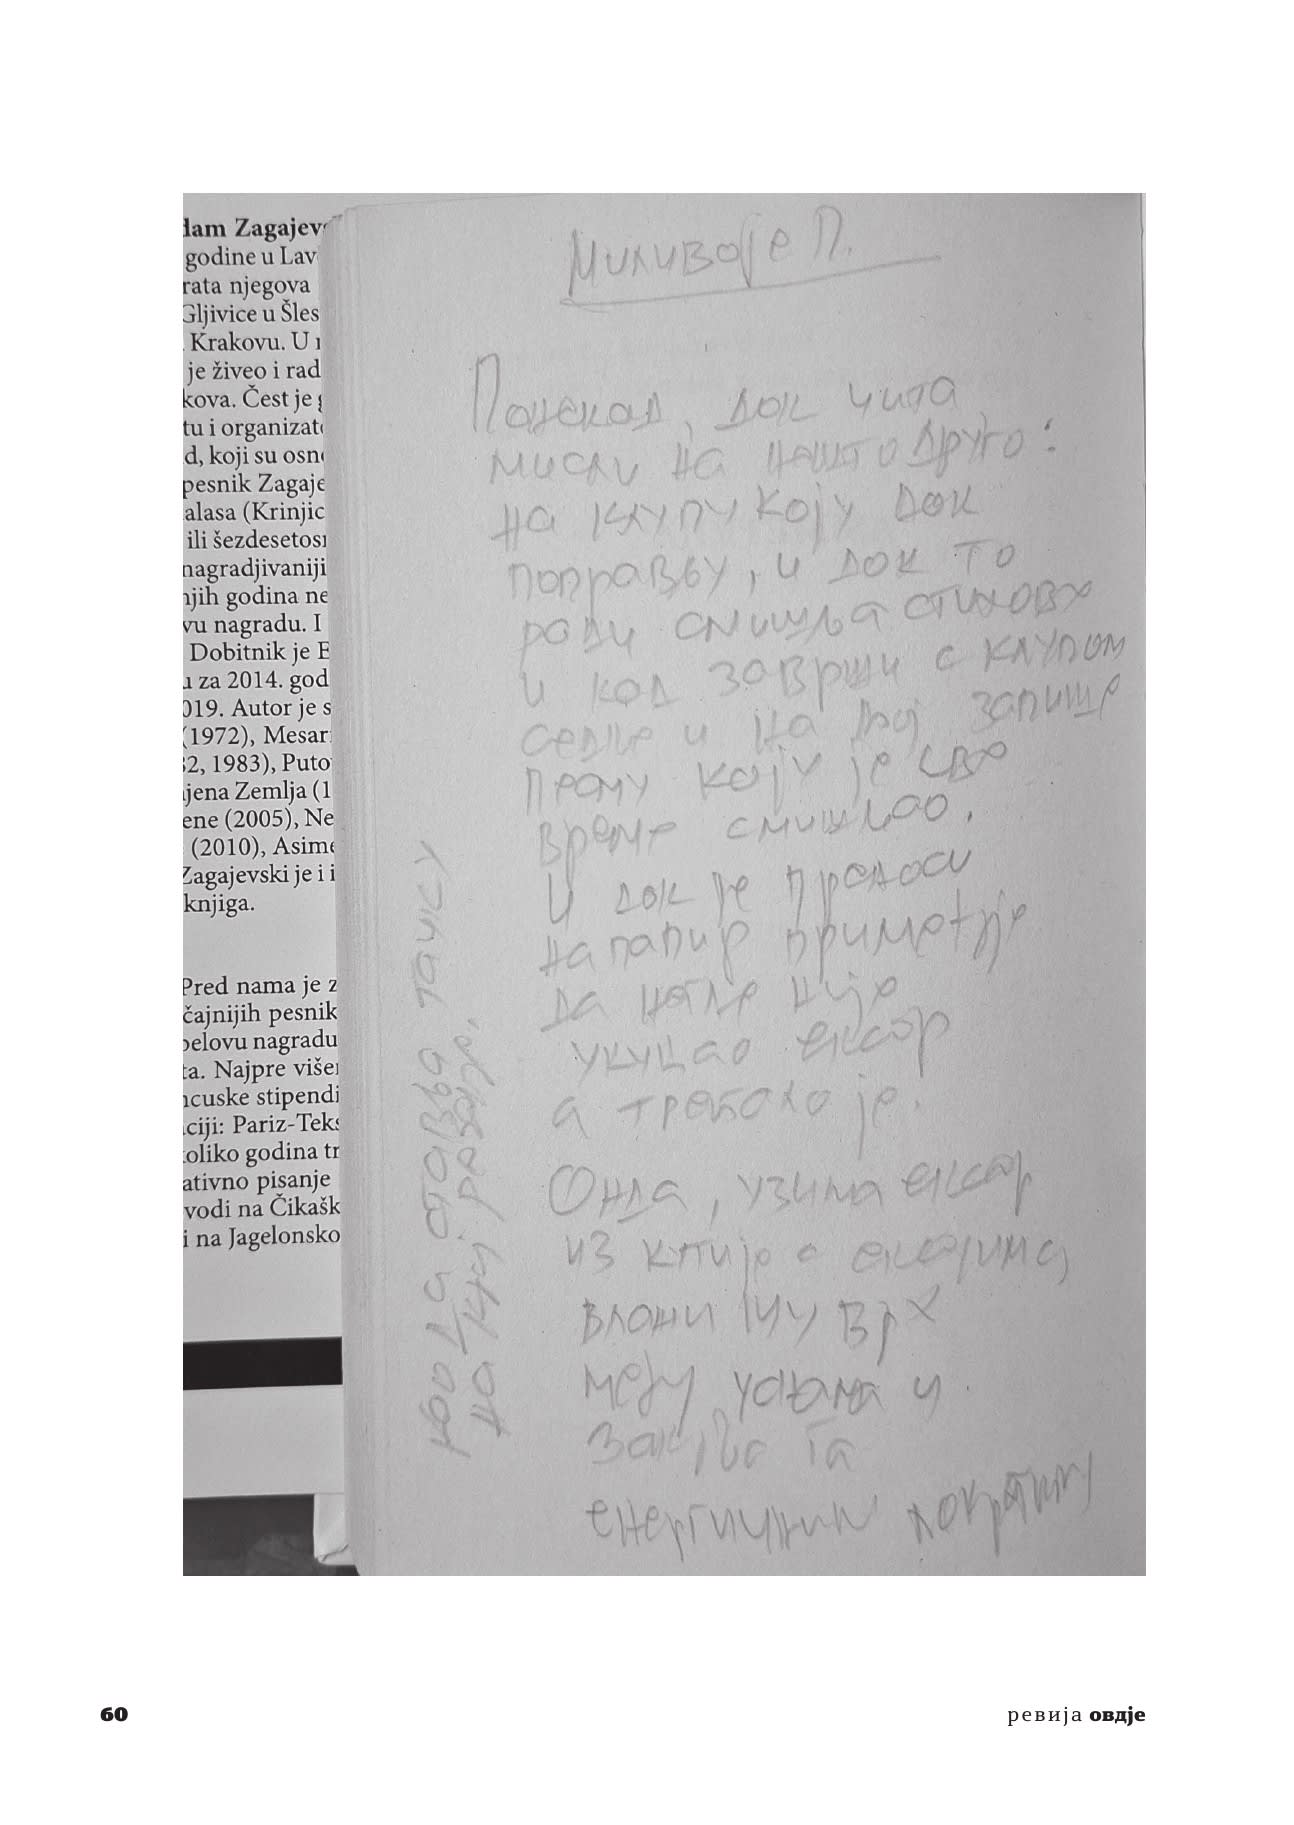 dam Zagajev
godine u Lav
rata njegova
Gljivice u Šles
Krakovu. U
je živeo i rad
kova. Čest je
tu i organizat
d, koji su osn
pesnik Zagaje
alasa (Krinjic
ili šezdesetos
nagradjivaniji
njih godina ne
vu nagradu. I
Dobitnik je E
u za 2014. god
019. Autor je s
(1972), Mesar
82, 1983), Puto
jena Zemlja (1
ene (2005), Ne
(2010), Asime
Zagajevski je i i
knjiga.
Pred nama je z
čajnijih pesnik
belovu nagradu
ta. Najpre više
ncuske stipendi
ciji: Pariz-Teks
oliko godina tr
ativno pisanje
vodi na Čikašk
i na Jagelonsko
Миливоје П.
Понекад, док чита
мисли на нешто друго:
на клупу коју док
поправљу, и док то
ради смишља стихове
и кад заврши с клупом
седне и на њој запише
коју је све
време смишљао.
И док је преноси
на папир приметје
да негде није
укуцао ексер
а требало је.
Онда, узима ексер
из кутије с ексерима
влажи му врх
међу уснама и
закива га
енергичним покретом
руке и отавља тачку
на крај
60
ревија овдје